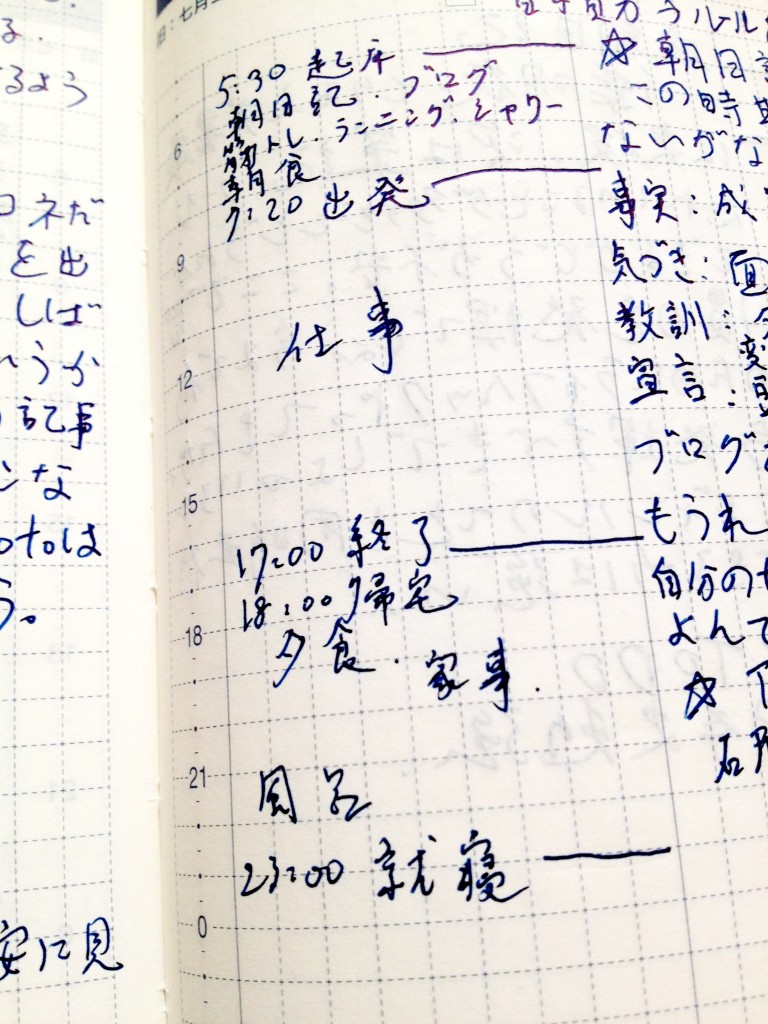 る.
るよう
ネだ
を出
しば
いうか
記事
ンな
otoは
う。
安に見
日:七月
5:30 起床
朝日記・ブログ
筋トレ・ランニング・シャワー
朝食
7:20 出発
6
9
仕事
12
15
17:00 終了
18:00 帰宅
18
夕食・家事.
21
風呂
23:00 就寝
0
ルール
☆ 朝日記
この時期
ないがな
事実:成
気づき:面
教訓:
宣言:
ブログ
もうれ
自分の
よんで
☆